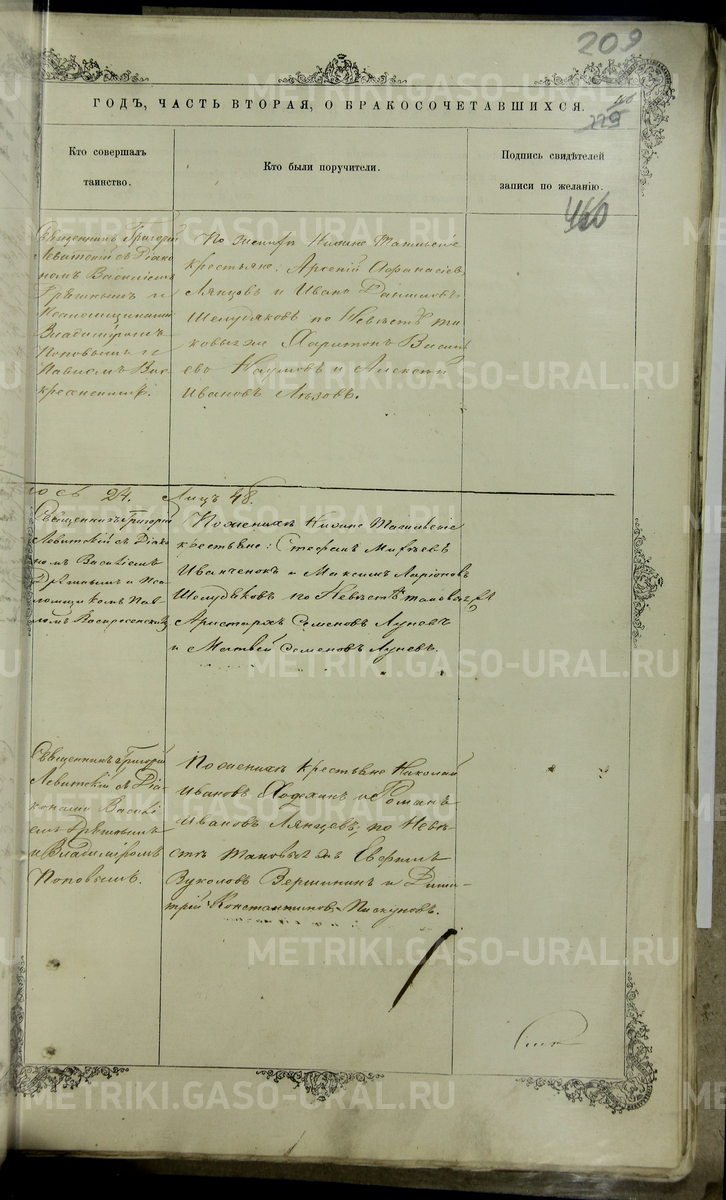 209
ГОДЪ, ЧАСТЬ ВТОРАЯ, О БРАКОСОЧЕТАВШИХСЯ.
229
Кто совершалъ
таинство.
Кто были поручители.
Подпись свидѣтелей
записи по желанію.
460
Священникъ Григорій
Левитскій съ Діако
номъ Василіемъ
и
Псаломщиками
Владиміромъ
Поповымъ и
Павломъ Вос
кресенскимъ.
По женихѣ Нижне Тагильскіе
крестьяне: Арсеній Аѳанасіевъ
Лянцовъ и Иванъ Даниловъ
Шелудяковъ по Невѣстѣ та
ковые же Харитонъ Василь
евъ Наумовъ и Алексѣй
Ивановъ
24. Лицъ 48.
Священникъ Григорій
Левитскій съ Діако
номъ Василіемъ
и Пса
ломщикомъ Пав
ломъ Воскресенскимъ
По женихѣ Нижне Тагильскіе
крестьяне: Стефанъ Матѳеевъ
Иванченокъ и Максимъ Ларіоновъ
Шолудяковъ, по Невѣстѣ таковые же
Аристархъ Семеновъ Лупевъ
и Матвей Семеновъ Лупевъ.
Священникъ Григорій
Левитскій съ Діа
конами Васил
емъ
и Владиміромъ
Поповымъ.
По женихѣ крестьяне Николай
Ивановъ и Романъ
Ивановъ Лянцевъ, по Невѣ
стѣ таковые же Евфимъ
Вуколовъ Вершининъ и Дими-
трій Константиновъ Пискуновъ.
METRIKI.GASO-URAL.RU